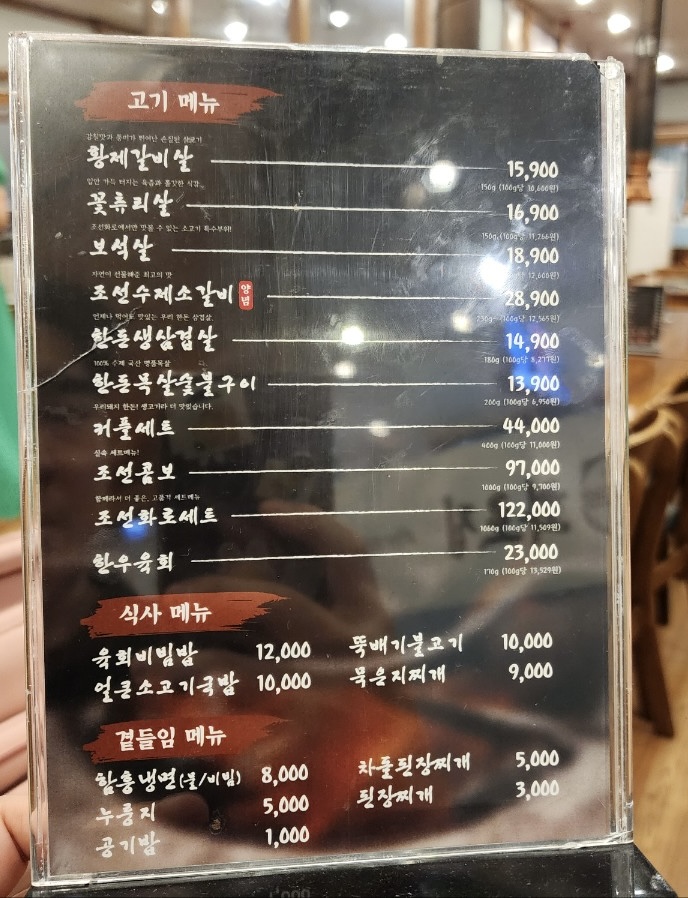 고기 메뉴
감칠맛과 풍미가 뛰어난 손질된 살코기
황제갈비살 15,900
150g (100g당 10,600원)
입안 가득 터지는 육즙과 쫄깃한 식감
꽃류리살 16,900
150g (100g당 11,266원)
조선화로에서만 맛볼 수 있는 소고기 특수부위!
보석살 18,900
12,600원)
자연이 선물해준 최고의 맛
조선수제소갈비 양념 28,900
230g (100g당 12,565원)
언제나 먹어도 맛있는 우리 한돈 삼겹살
한돈생삼겹살 14,900
180g (100g당 8,277원)
100% 수제 국산 명품목살
한돈목살숯불구이 13,900
200g (100g당 6,950원)
우리돼지 한돈! 생고기라 더 맛있습니다.
커플세트 44,000
400g (100g당 11,000원)
실속 세트메뉴!
조선콤보 97,000
1000g (100g당 9,700원)
함께라서 더 좋은, 고품격 세트메뉴
조선화로세트 122,000
1060g (100g당 11,509원)
한우육회 23,000
170g (100g당 13,529원)
식사 메뉴
육회비빔밥 12,000 뚝배기불고기 10,000
얼큰소고기국밥 10,000 묵은지찌개 9,000
곁들임 메뉴
함흥냉면(물/비빔) 8,000 차돌된장찌개 5,000
누룽지 5,000 된장찌개 3,000
공기밥 1,000